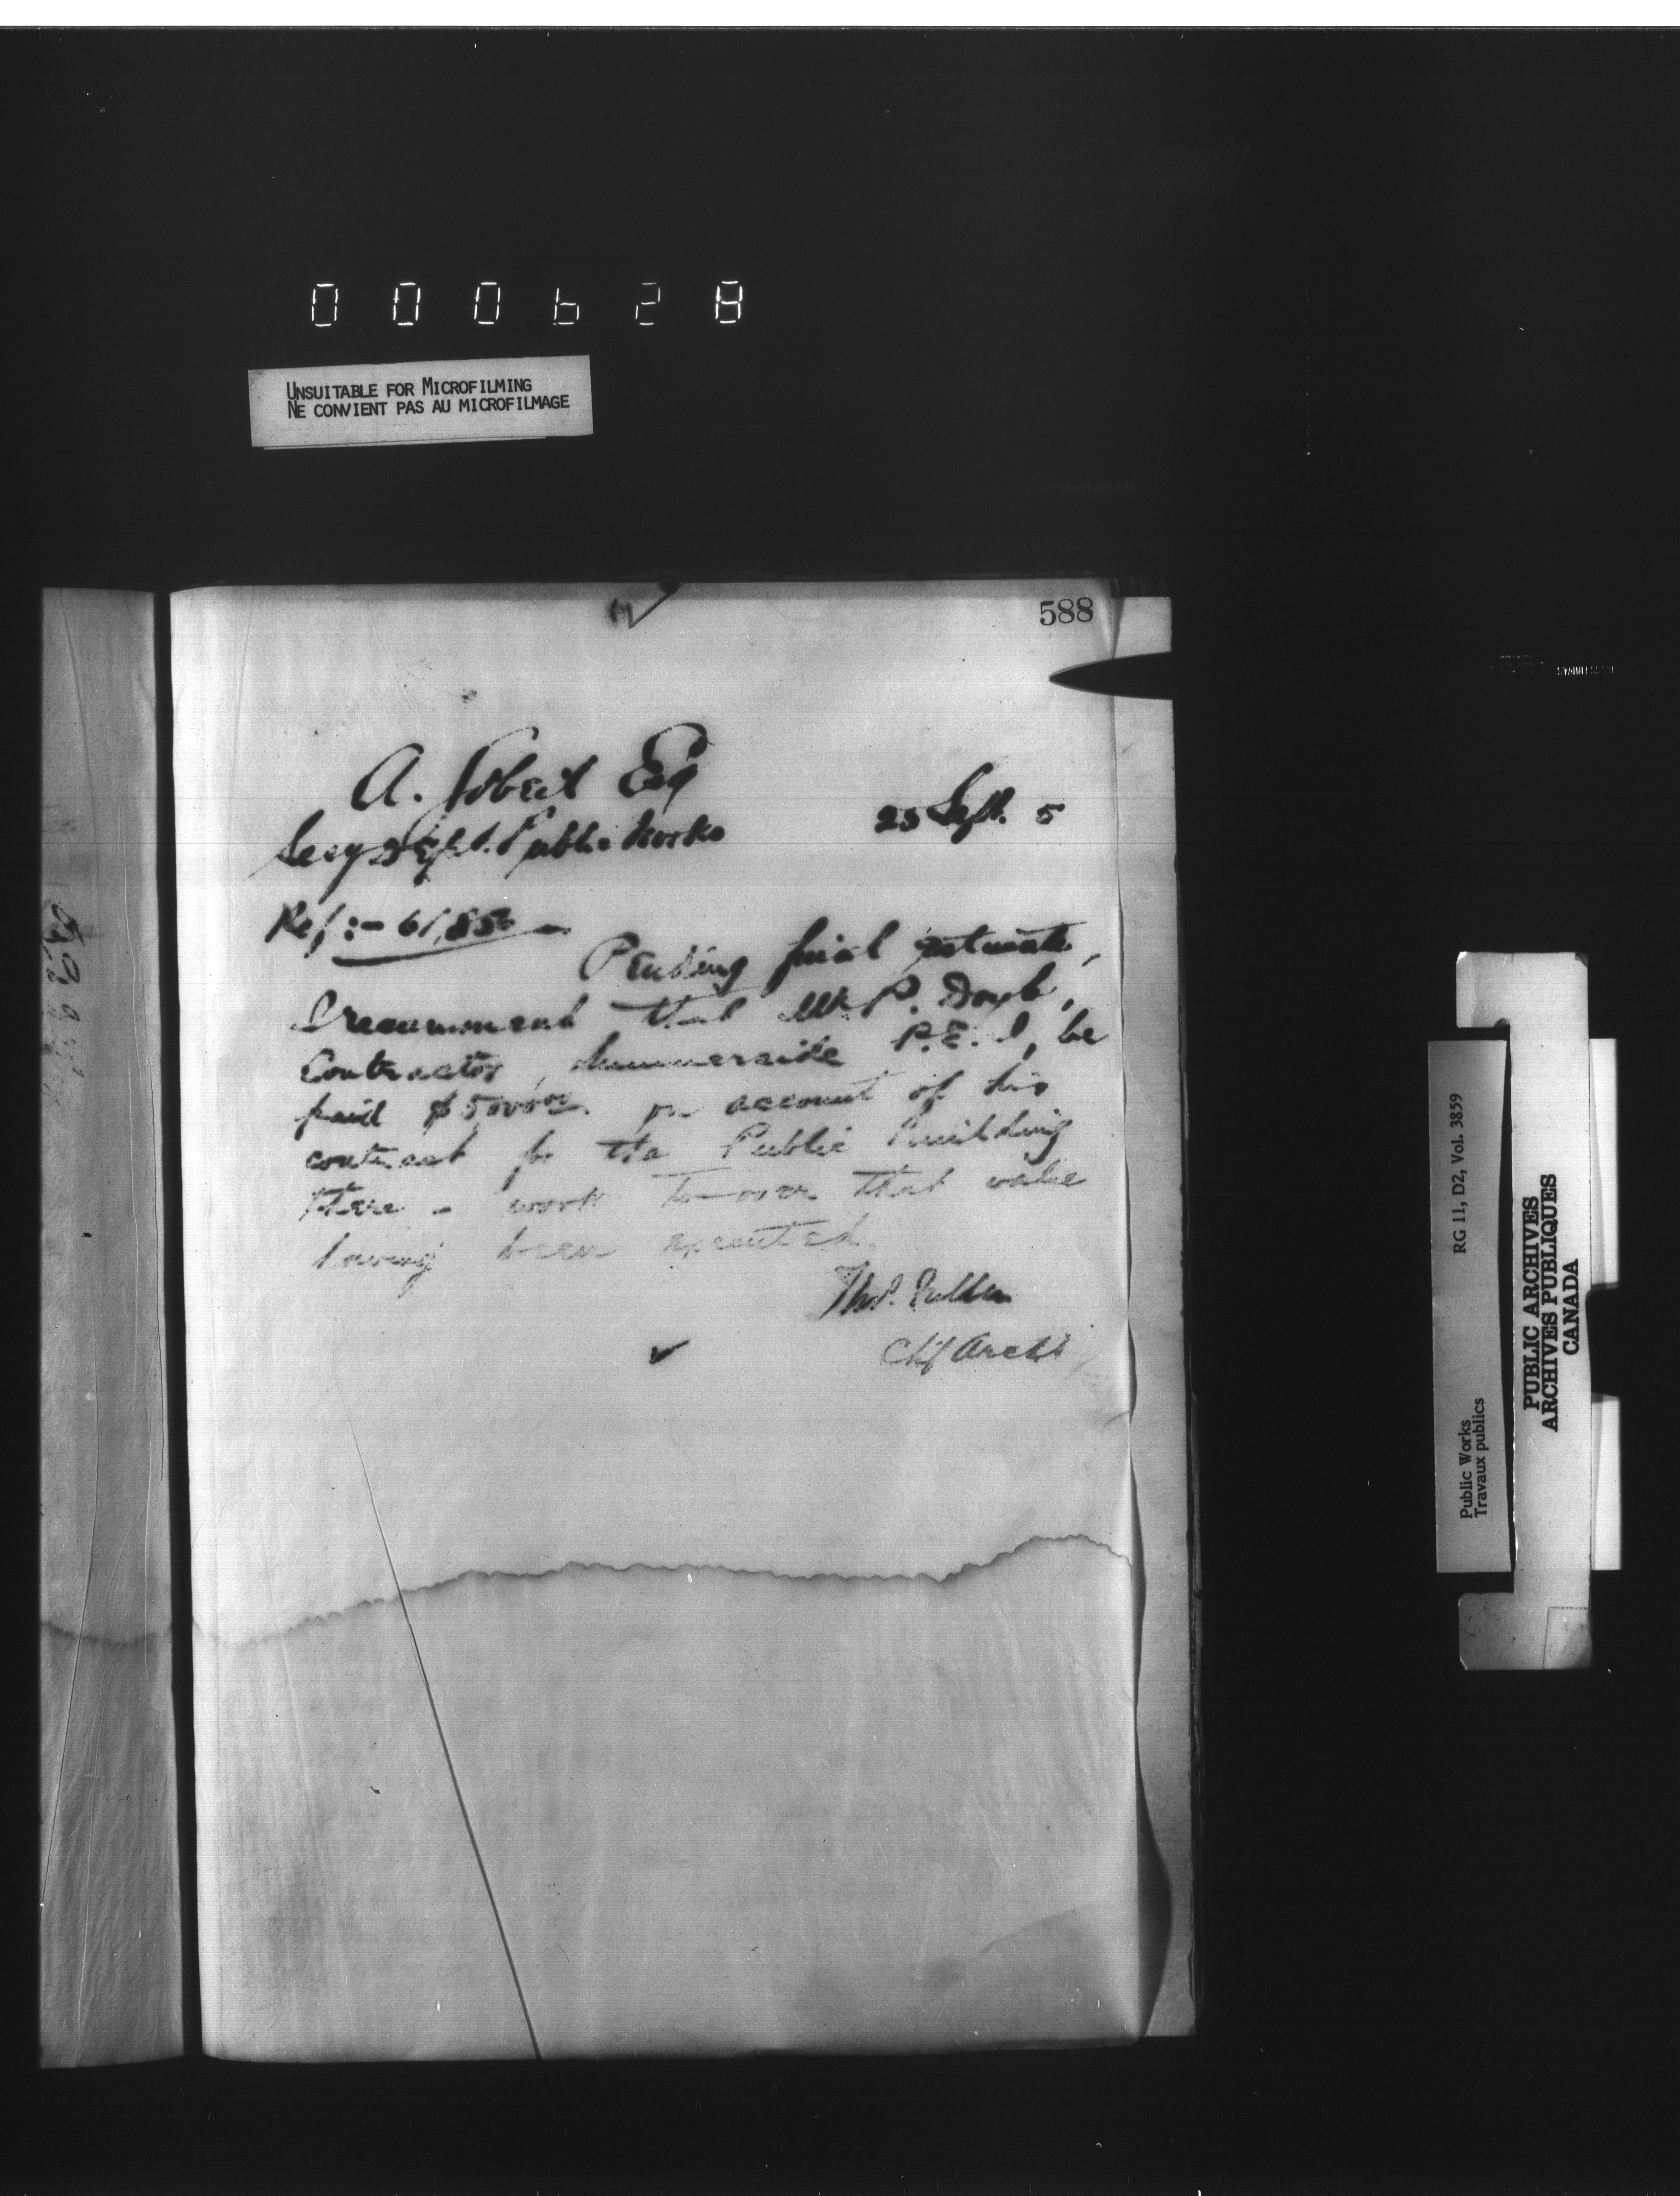 000628
UNSUITABLE FOR MICROFILMING
NE CONVIENT PAS AU MICROFILMAGE
588
A. Gobeil Esq
Secy Dept. Public Works
23 Sept. 5
Ref:- 61,856
Pending final estimate,
I recommend that Mr P. Doyle,
Contractor, Summerside P.E.I, be
paid $500000. on account of his
contract for the Public Building
there - work to over that value
having been executed.
Thos. Fuller
Chf Archt
RG 11, D2, Vol. 3859
Public Works
Travaux publics
PUBLIC ARCHIVES
ARCHIVES PUBLIQUES
CANADA